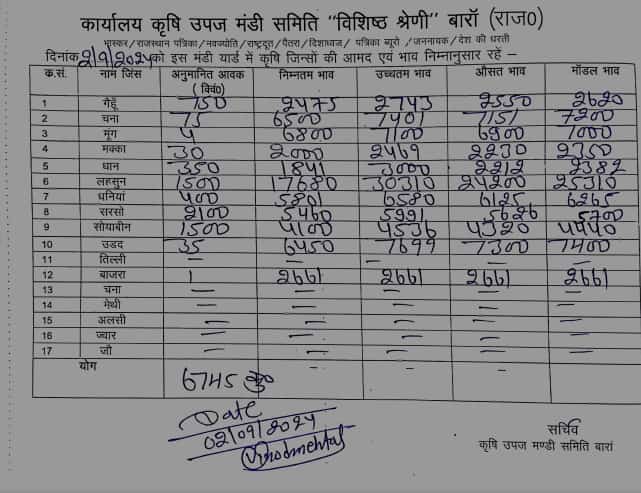 कार्यालय कृषि उपज मंडी समिति "विशिष्ठ श्रेणी" बारॉ (राज0)
भास्कर/राजस्थान पत्रिका/नवज्योति/राष्ट्रदूत/पैंतरा/दिशाध्वज/ पत्रिका ब्यूरो /जननायक/देश की धरती
दिनांक 2/9/2024 को इस मंडी यार्ड में कृषि जिन्सों की आमद एवं भाव निम्नानुसार रहें –
क.सं. नाम जिंस अनुमानित आवक (क्विं0) निम्नतम भाव उच्चतम भाव औसत भाव मॉडल भाव
1 गेहूँ 750 2475 2743 2550 2620
2 चना 75 6500 7401 7151 7200
3 मूंग 4 6800 7100 6900 7000
4 मक्का 30 2000 2469 2230 2350
5 धान 350 1841 3000 2212 2382
6 लहसुन 1500 17680 30310 24200 25310
7 धनियां 400 5801 6580 6125 6265
8 सरसो 2100 5460 5991 5626 5700
9 सोयाबीन 1500 4100 4536 4320 4440
10 उडद 35 6450 7699 7300 7400
11 तिल्ली – – – – –
12 बाजरा 1 2661 2661 2661 2661
13 चना – – – – –
14 मेथी – – – – –
15 अलसी – – – – –
16 ज्वार – – – – –
17 जौ – – – – –
योग 6745 – – – –
Date
02/09/2024
सचिव
कृषि उपज मण्डी समिति बारां